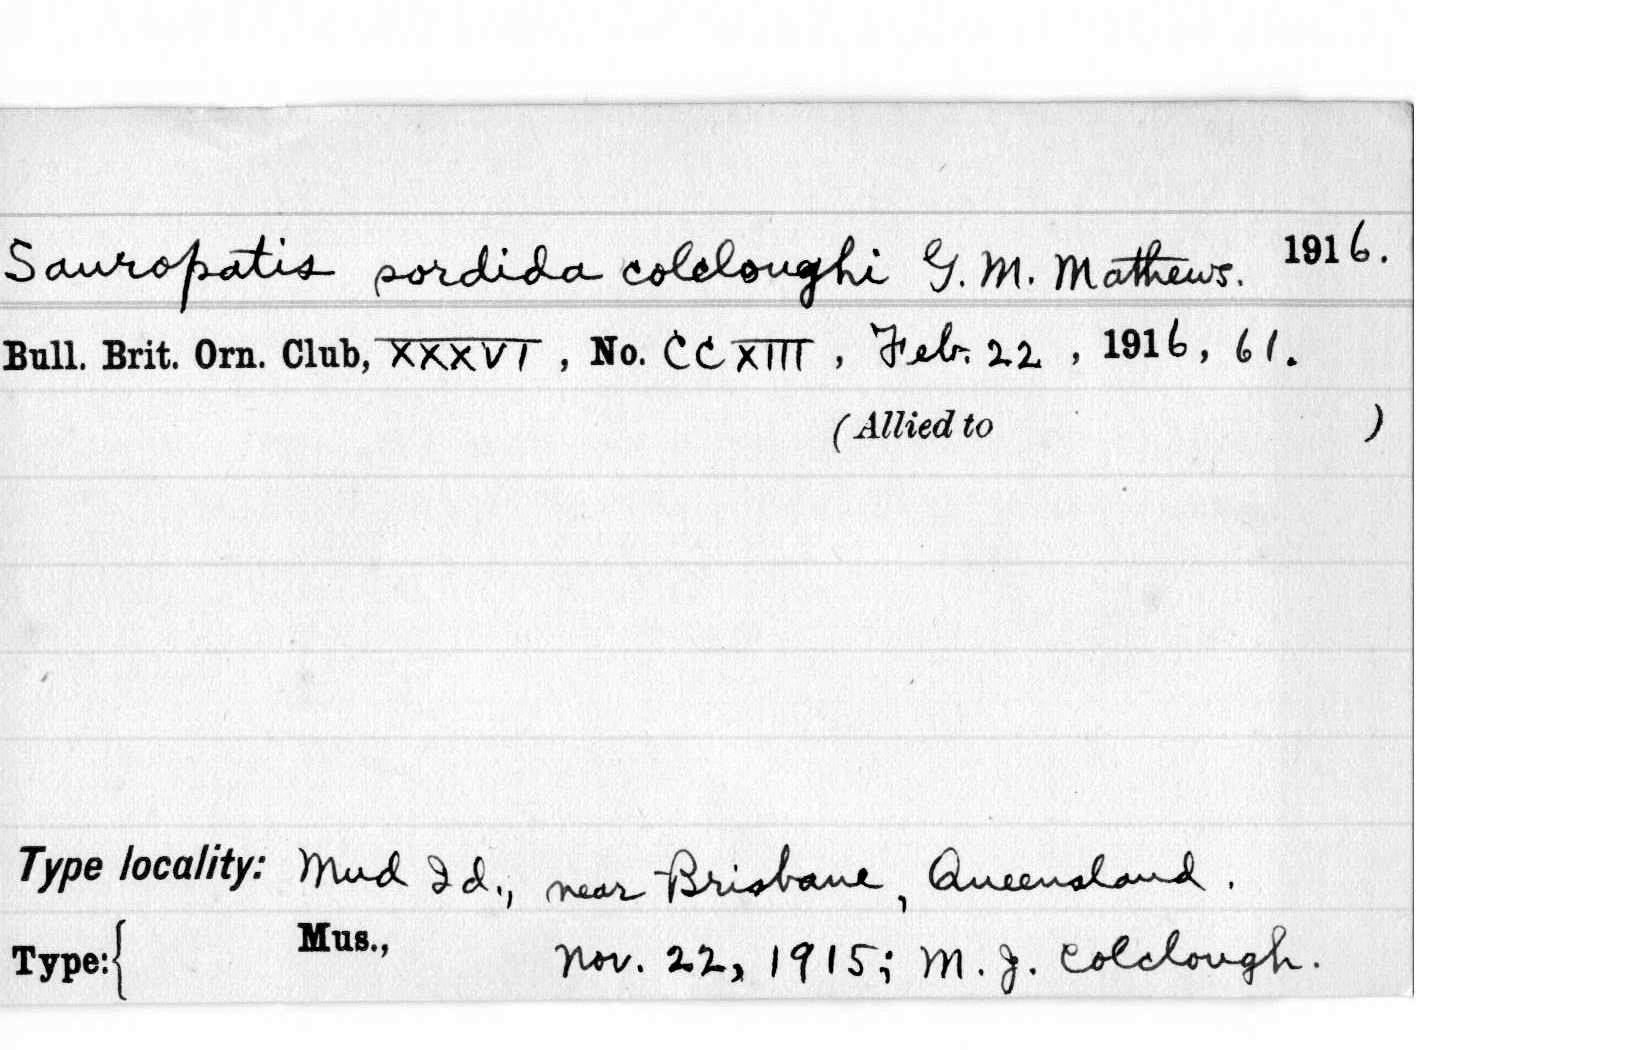 Sauropatis sordida colcloughi G. M. Mathews. 1916.
Bull. Brit. Orn. Club, XXXVI, No. CCXIII, Feb. 22, 1916, 61.
(Allied to )
Type locality: Mud Id., near Brisbane, Queensland.
Type:{ Mus., Nov. 22, 1915; M. J. Colclough.